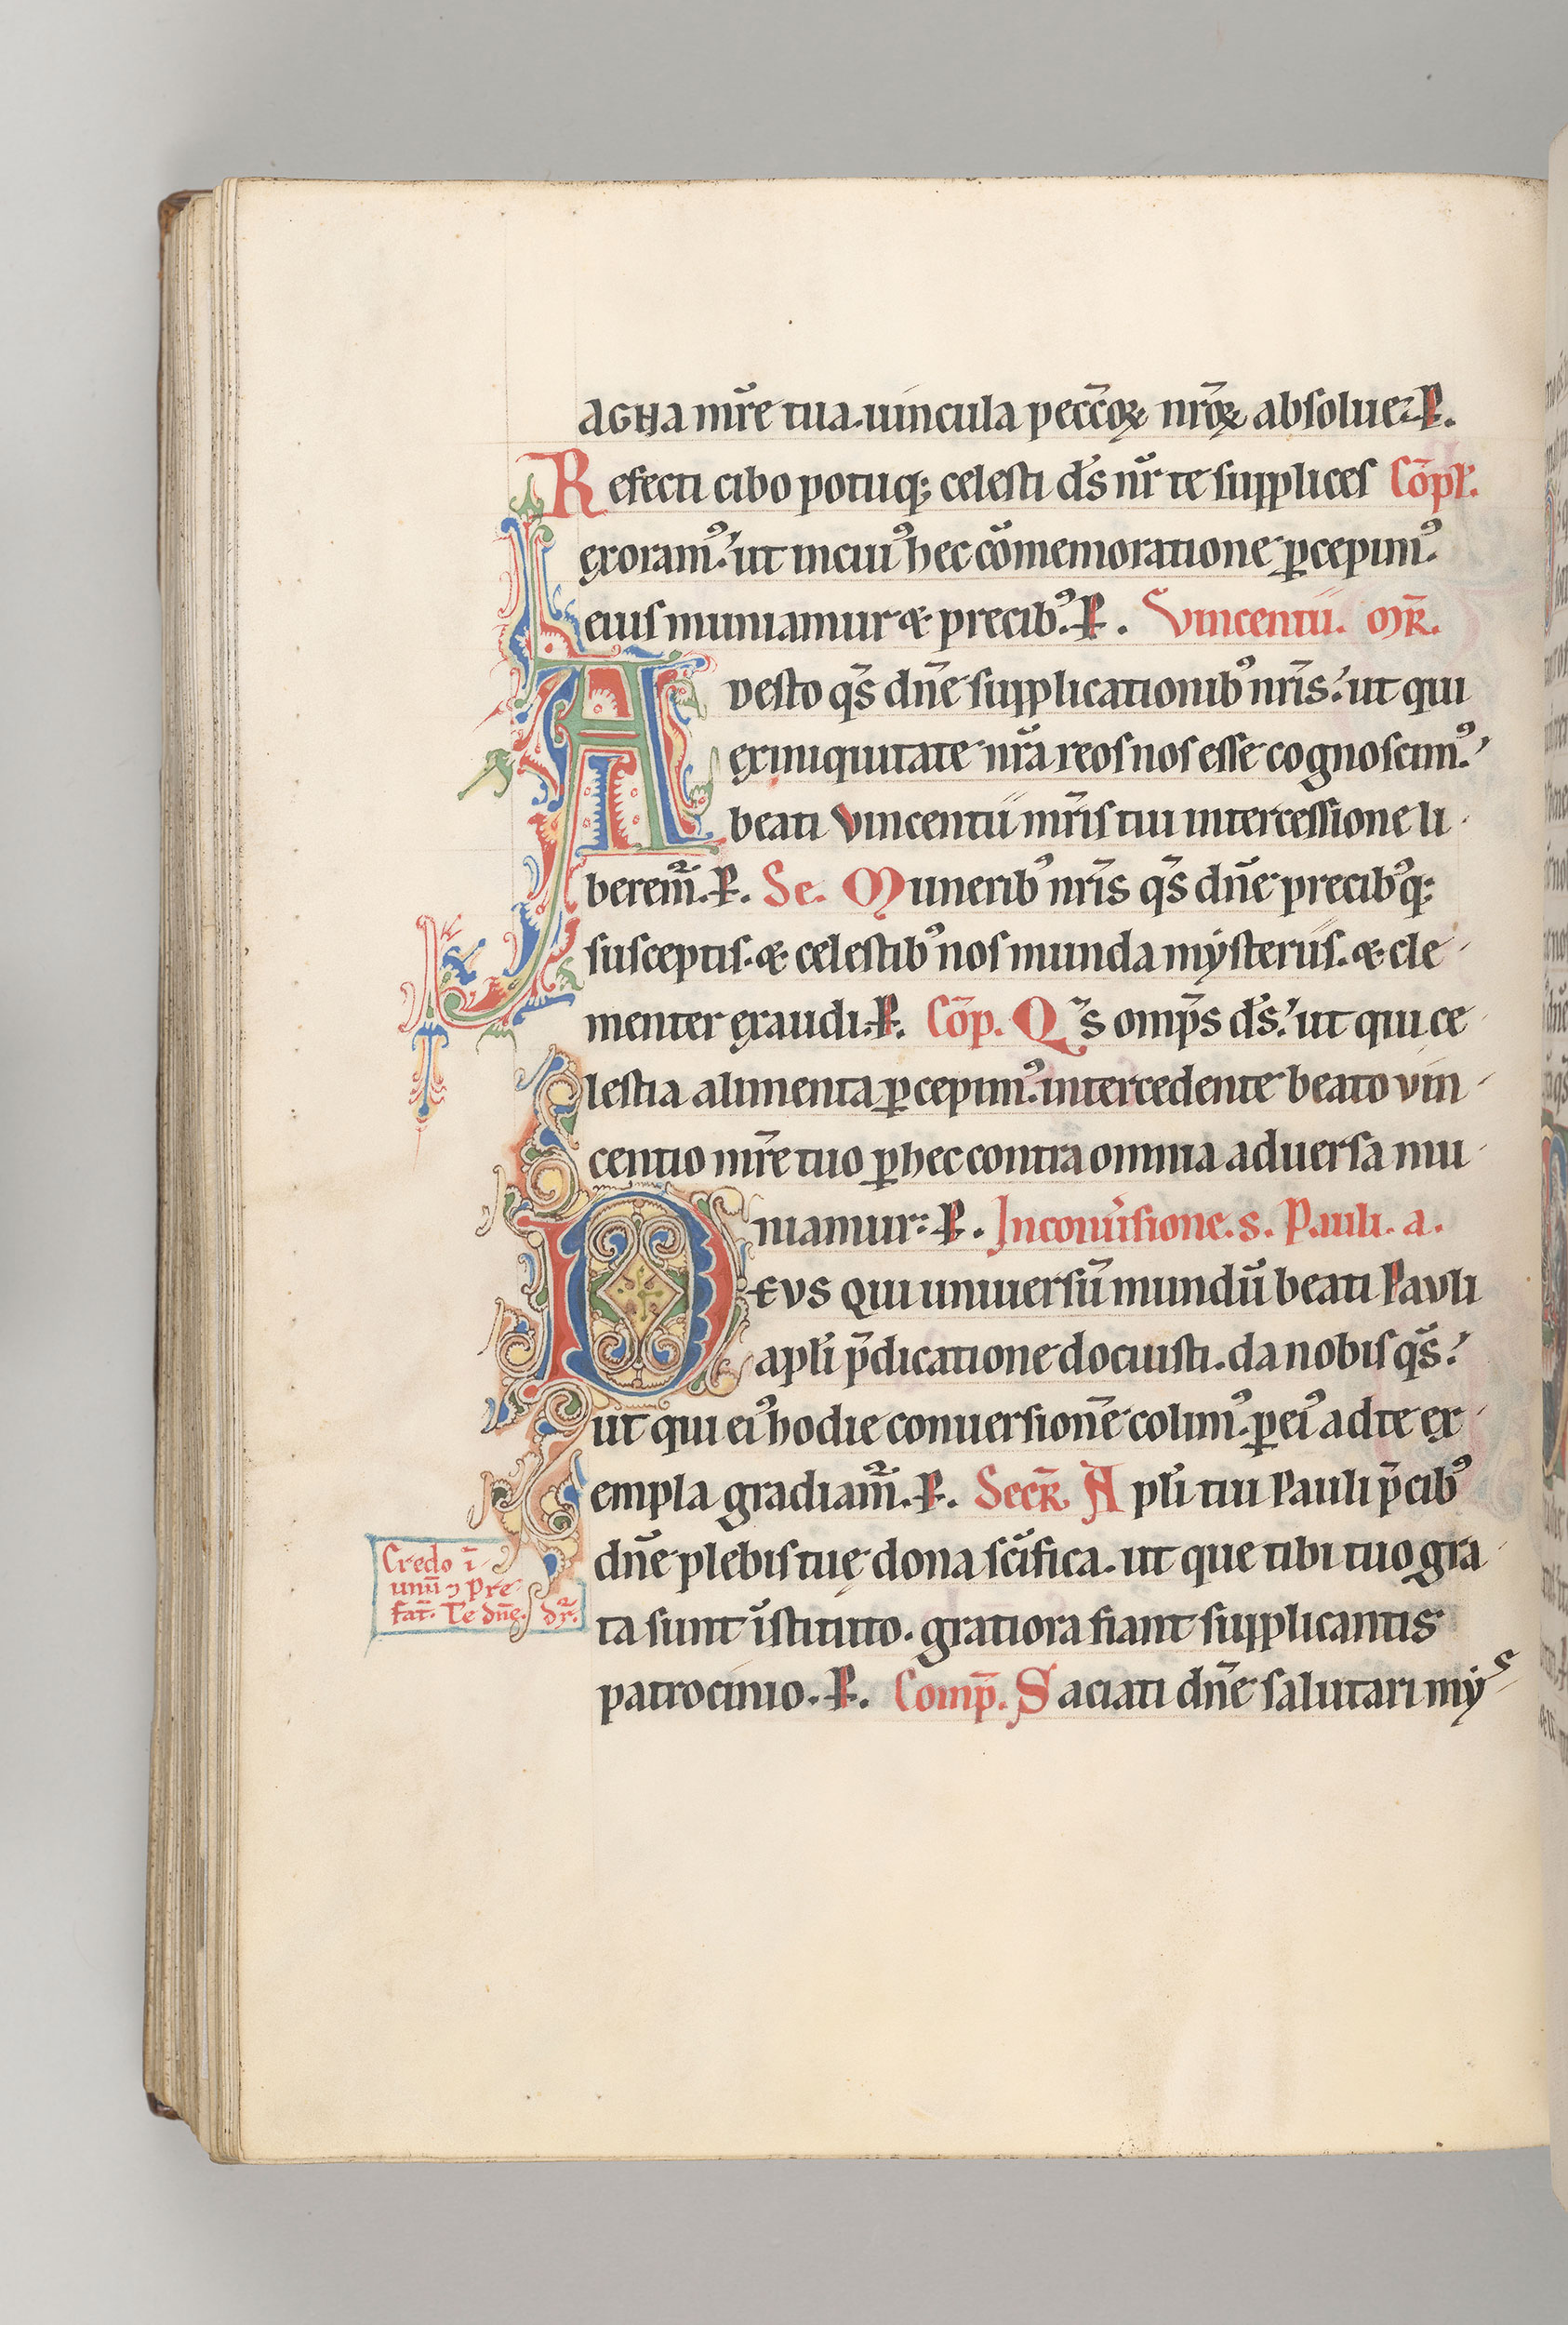 agna mr̄e tua. uincula pecc̄oꝝ nr̄oꝝ absolue. P.
Refecti cibo potuq; celesti d̄s nr̄ te supplices Cōpl̄.
exoramꝰ. ut in cuiꝰ hec cōmemoratione ꝑcepimꝰ.
eius muniamur & precibꝰ. P. Vincentii. MR̄.
Adesto qs̄ dn̄e supplicationibꝰ nr̄is. ut qui
ex iniquitate nr̄a reos nos esse cognoscimꝰ.
beati Vincentii mr̄is tui intercessione li
berem̄. P. Se. Muneribꝰ nr̄is qs̄ dn̄e precibꝰq;
susceptis. & celestibꝰ nos munda mẏsteriis. & cle
menter exaudi. P. Cōp. Qs̄ omp̄s d̄s. ut qui ce
lestia alimenta ꝑcepimꝰ. intercedente beato vin
centio mr̄e tuo ꝑ hec contra omnia aduersa mu
niamur. P. In conūsione. s. Pauli. a.
DEVS qui uniuersū mundū beati Pavli
apl̄i p̄dicatione docuisti. da nobis qs̄.
ut qui eiꝰ hodie conuersionē colimꝰ. ꝑ eiꝰ ad te ex
empla gradiam̄. P. Secr̄ Apl̄i tui Pauli p̄cibꝰ
dn̄e plebis tuę dona sc̄ifica. ut que tibi tuo gra
ta sunt īstituto. gratiora fiant supplicantis
patrocinio. P. Comp̄. Saciati dn̄e salutari mẏs
Credo ī
unū ⁊ pre
fat̄. Te dn̄e. dr̄.